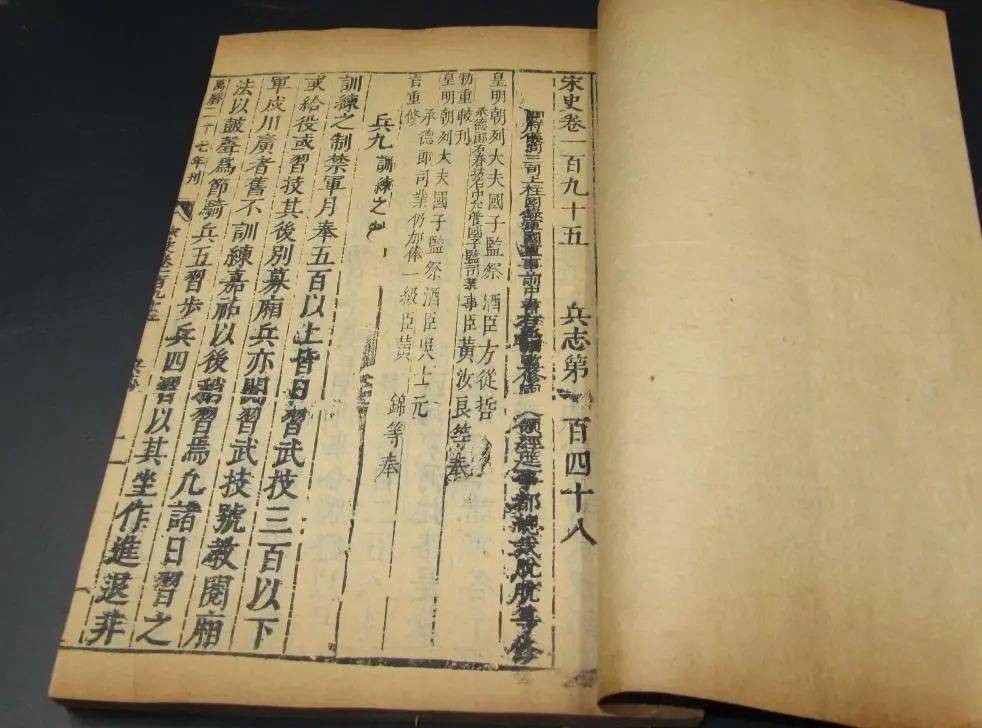 宋史卷一百九十五 兵志第一百四十八
府儀同三司上柱國錄軍國重事前中書右丞相 領經筵事都總裁脫脫等修
皇明朝列大夫國子監祭酒臣方從哲
承德郎右春坊右中允管國子監司業事臣黃汝良等奉
勑重較刊
皇明朝列大夫國子監祭酒臣吳士元
承德郎司業仍加俸一級臣黃錦等奉
旨重修
兵九 訓練之
訓練之制禁軍月奉五百以上皆日習武技三百以下
或給役或習技其後別募廂兵亦閱習武技號教閱廂
軍戍川廣者舊不訓練嘉祐以後稍習焉凡諸日習之
法以鼓聲爲節騎兵五習步兵四習以其坐作進退非
萬曆二十七年刊 卷一百九十五 一